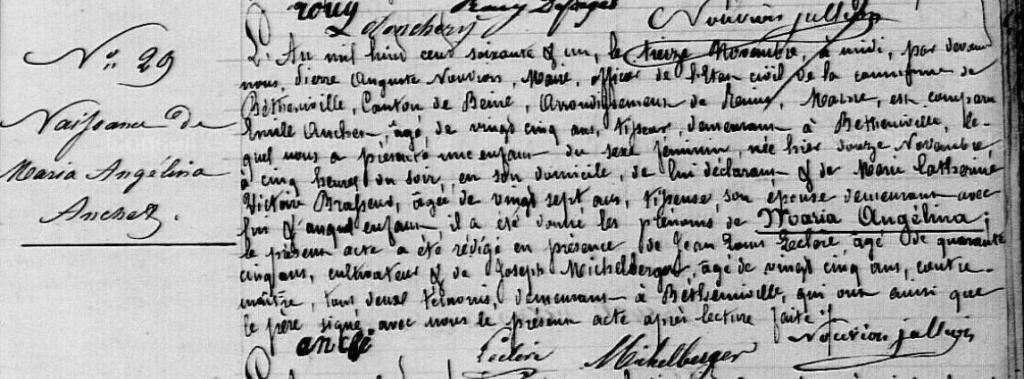 Nouvion jallien
N° 29
Naissance de
Maria Angélina
Anchez.
L'An mil huit cent soixante & un, le treize Novembre, à midi, par devant
nous, Pierre Auguste Nouvion, Maire, officier de l'état civil de la commune de
Bétheniville, Canton de Beine, Arrondissement de Reims, Marne, est comparu
Emile Anchez, âgé de vingt cinq ans, tisseur, demeurant à Bétheniville, le-
quel nous a présenté une enfant du sexe féminin, née hier douze Novembre
à cinq heures du soir, en son domicile, de lui déclarant & de Marie Catherine
Victoire Brasseur, âgée de vingt sept ans, tisseuse, son épouse demeurant avec
lui & auquel enfant, il a été donné les prénoms de Maria Angélina;
le présent acte a été rédigé en présence de Jean Louis Leclère âgé de quarante
cinq ans, cultivateur & de Joseph Michelberger, âgé de vingt cinq ans, contre-
maître, tous deux témoins, demeurant à Bétheniville, qui ont ainsi que
le père signé avec nous le présent acte après lecture faite.
Leclère Michelberger Nouvion jallien